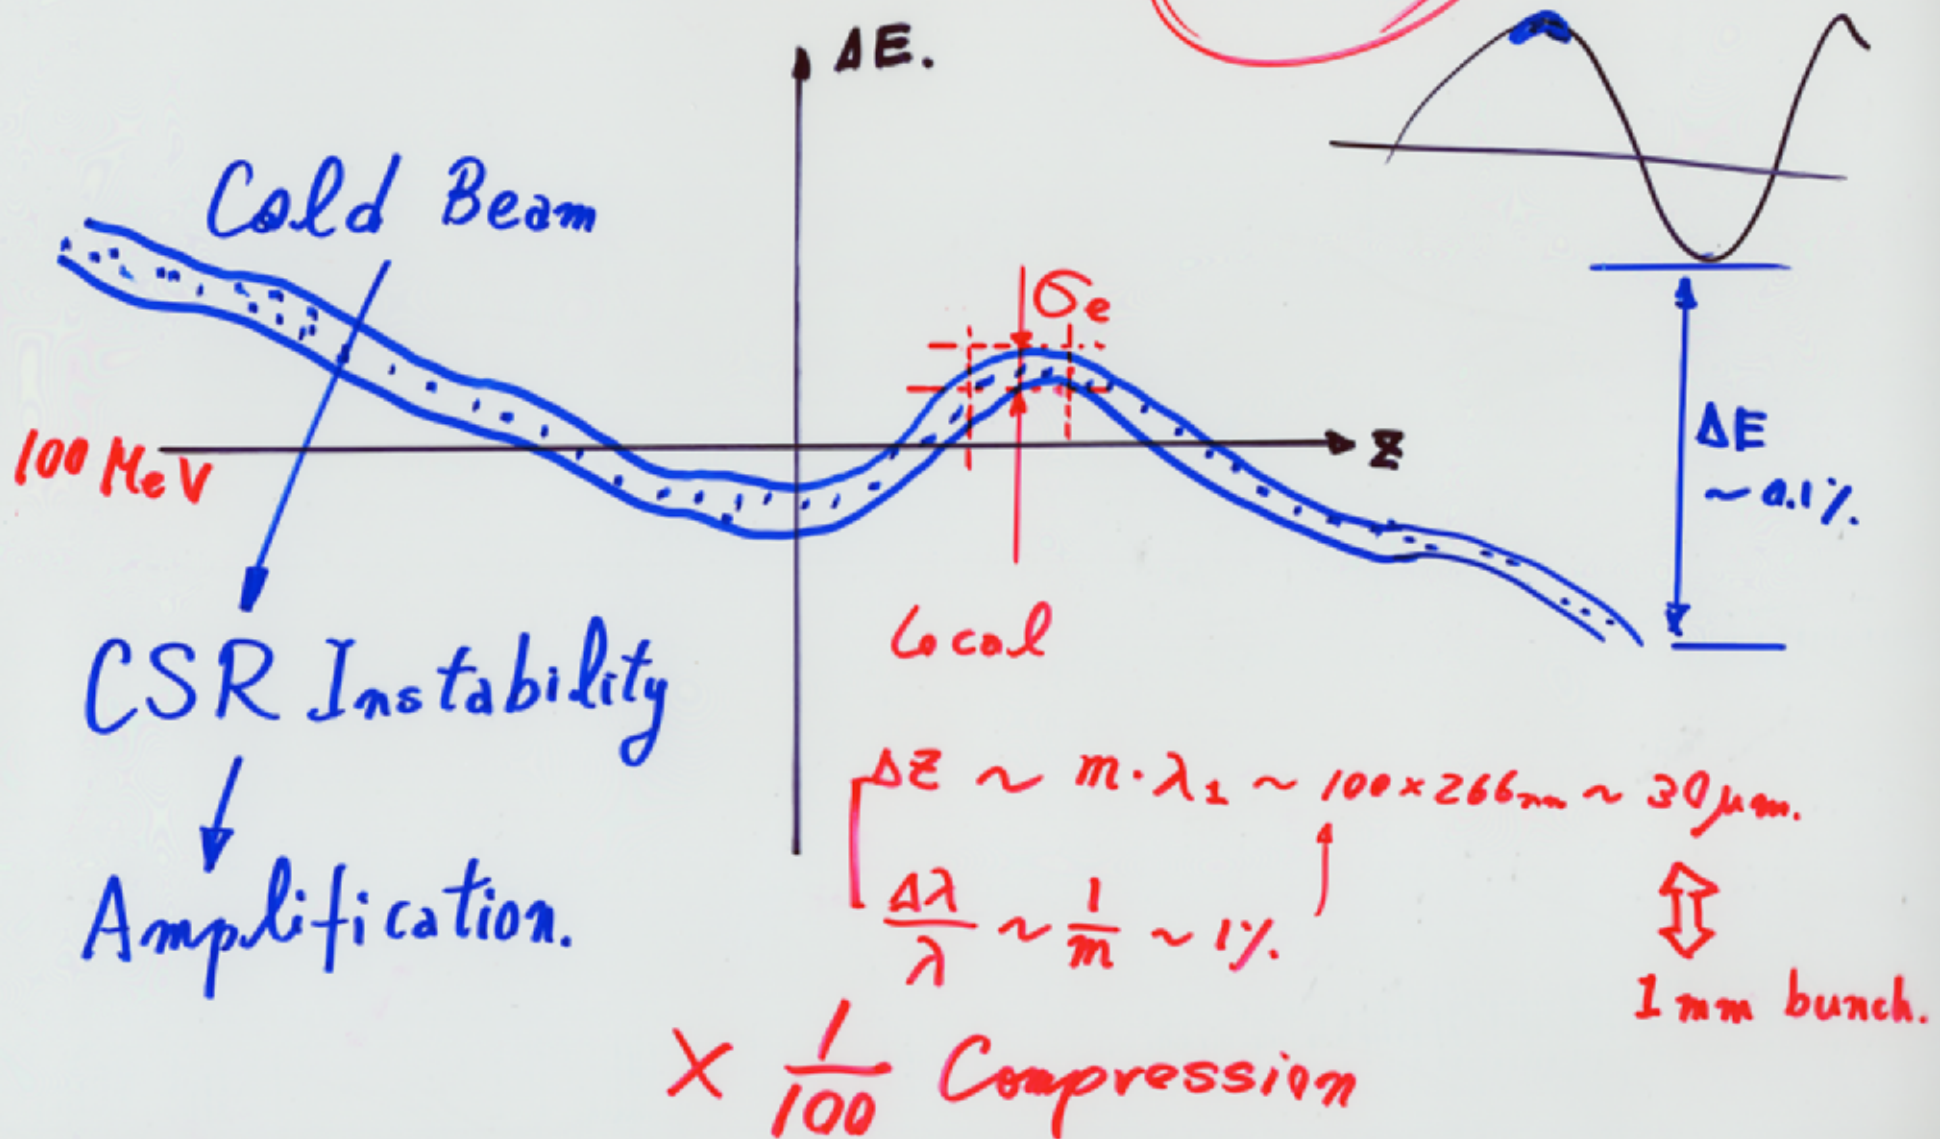 ΔE.
Cold Beam
σe
100 MeV
z
ΔE
~ 0.1%.
Local
CSR Instability
Amplification.
ΔZ ~ m·λ1 ~ 100×266nm ~ 30μm.
Δλ/λ ~ 1/m ~ 1%.
1mm bunch.
× 1/100 Compression